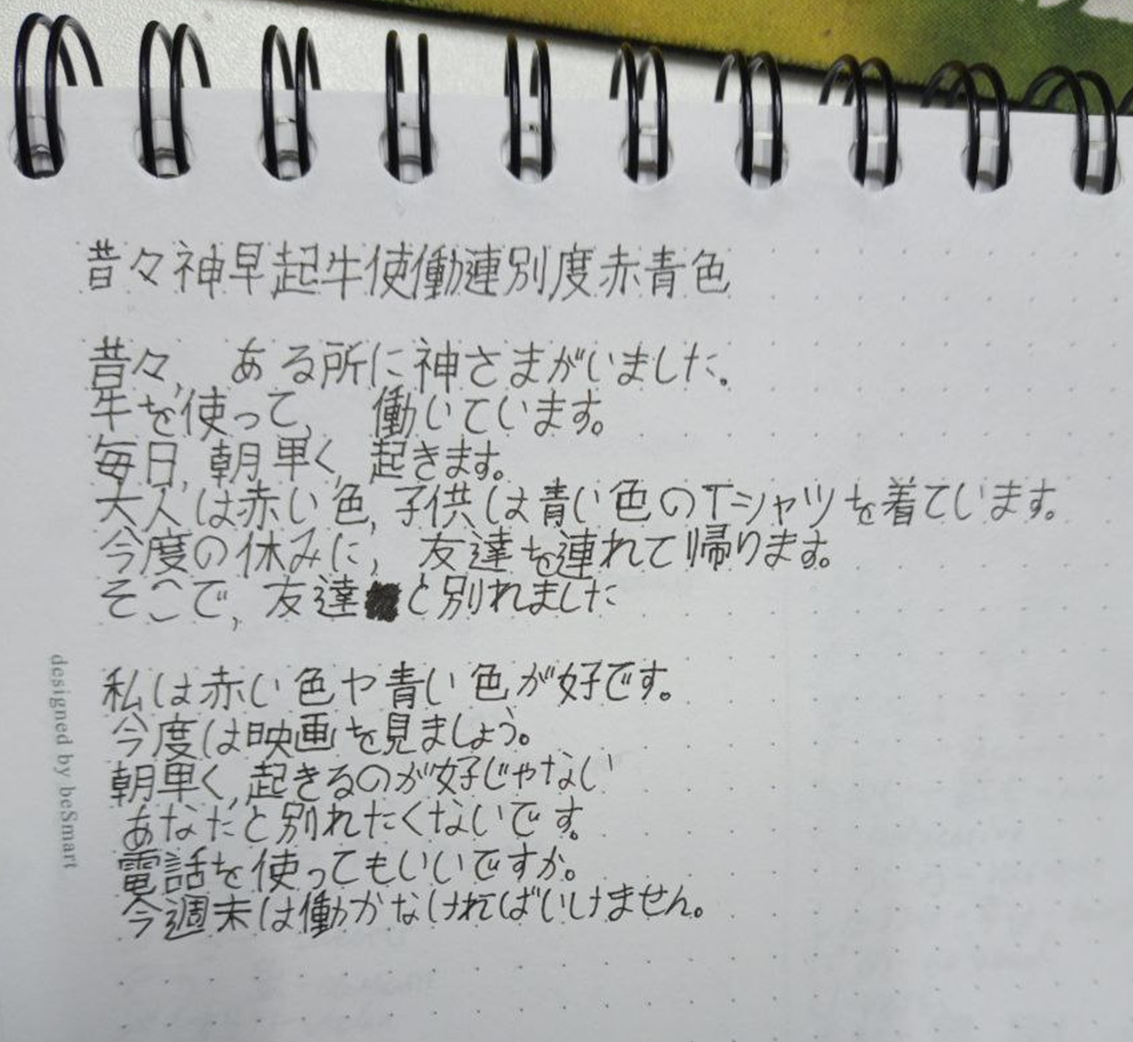 昔々神早起牛使働連別度赤青色
昔々, ある所に神さまがいました。
牛を使って, 働いています。
毎日, 朝早く, 起きます。
大人は赤い色, 子供は青い色のTシャツを着ています。
今度の休みに, 友達を連れて帰ります。
そこで, 友達と別れました
私は赤い色や青い色が好です。
今度は映画を見ましょう。
朝早く, 起きるのが好じゃない
あなだと別れたくないです。
電話を使ってもいいですか。
今週末は働かなければいけません。
designed by beSmart